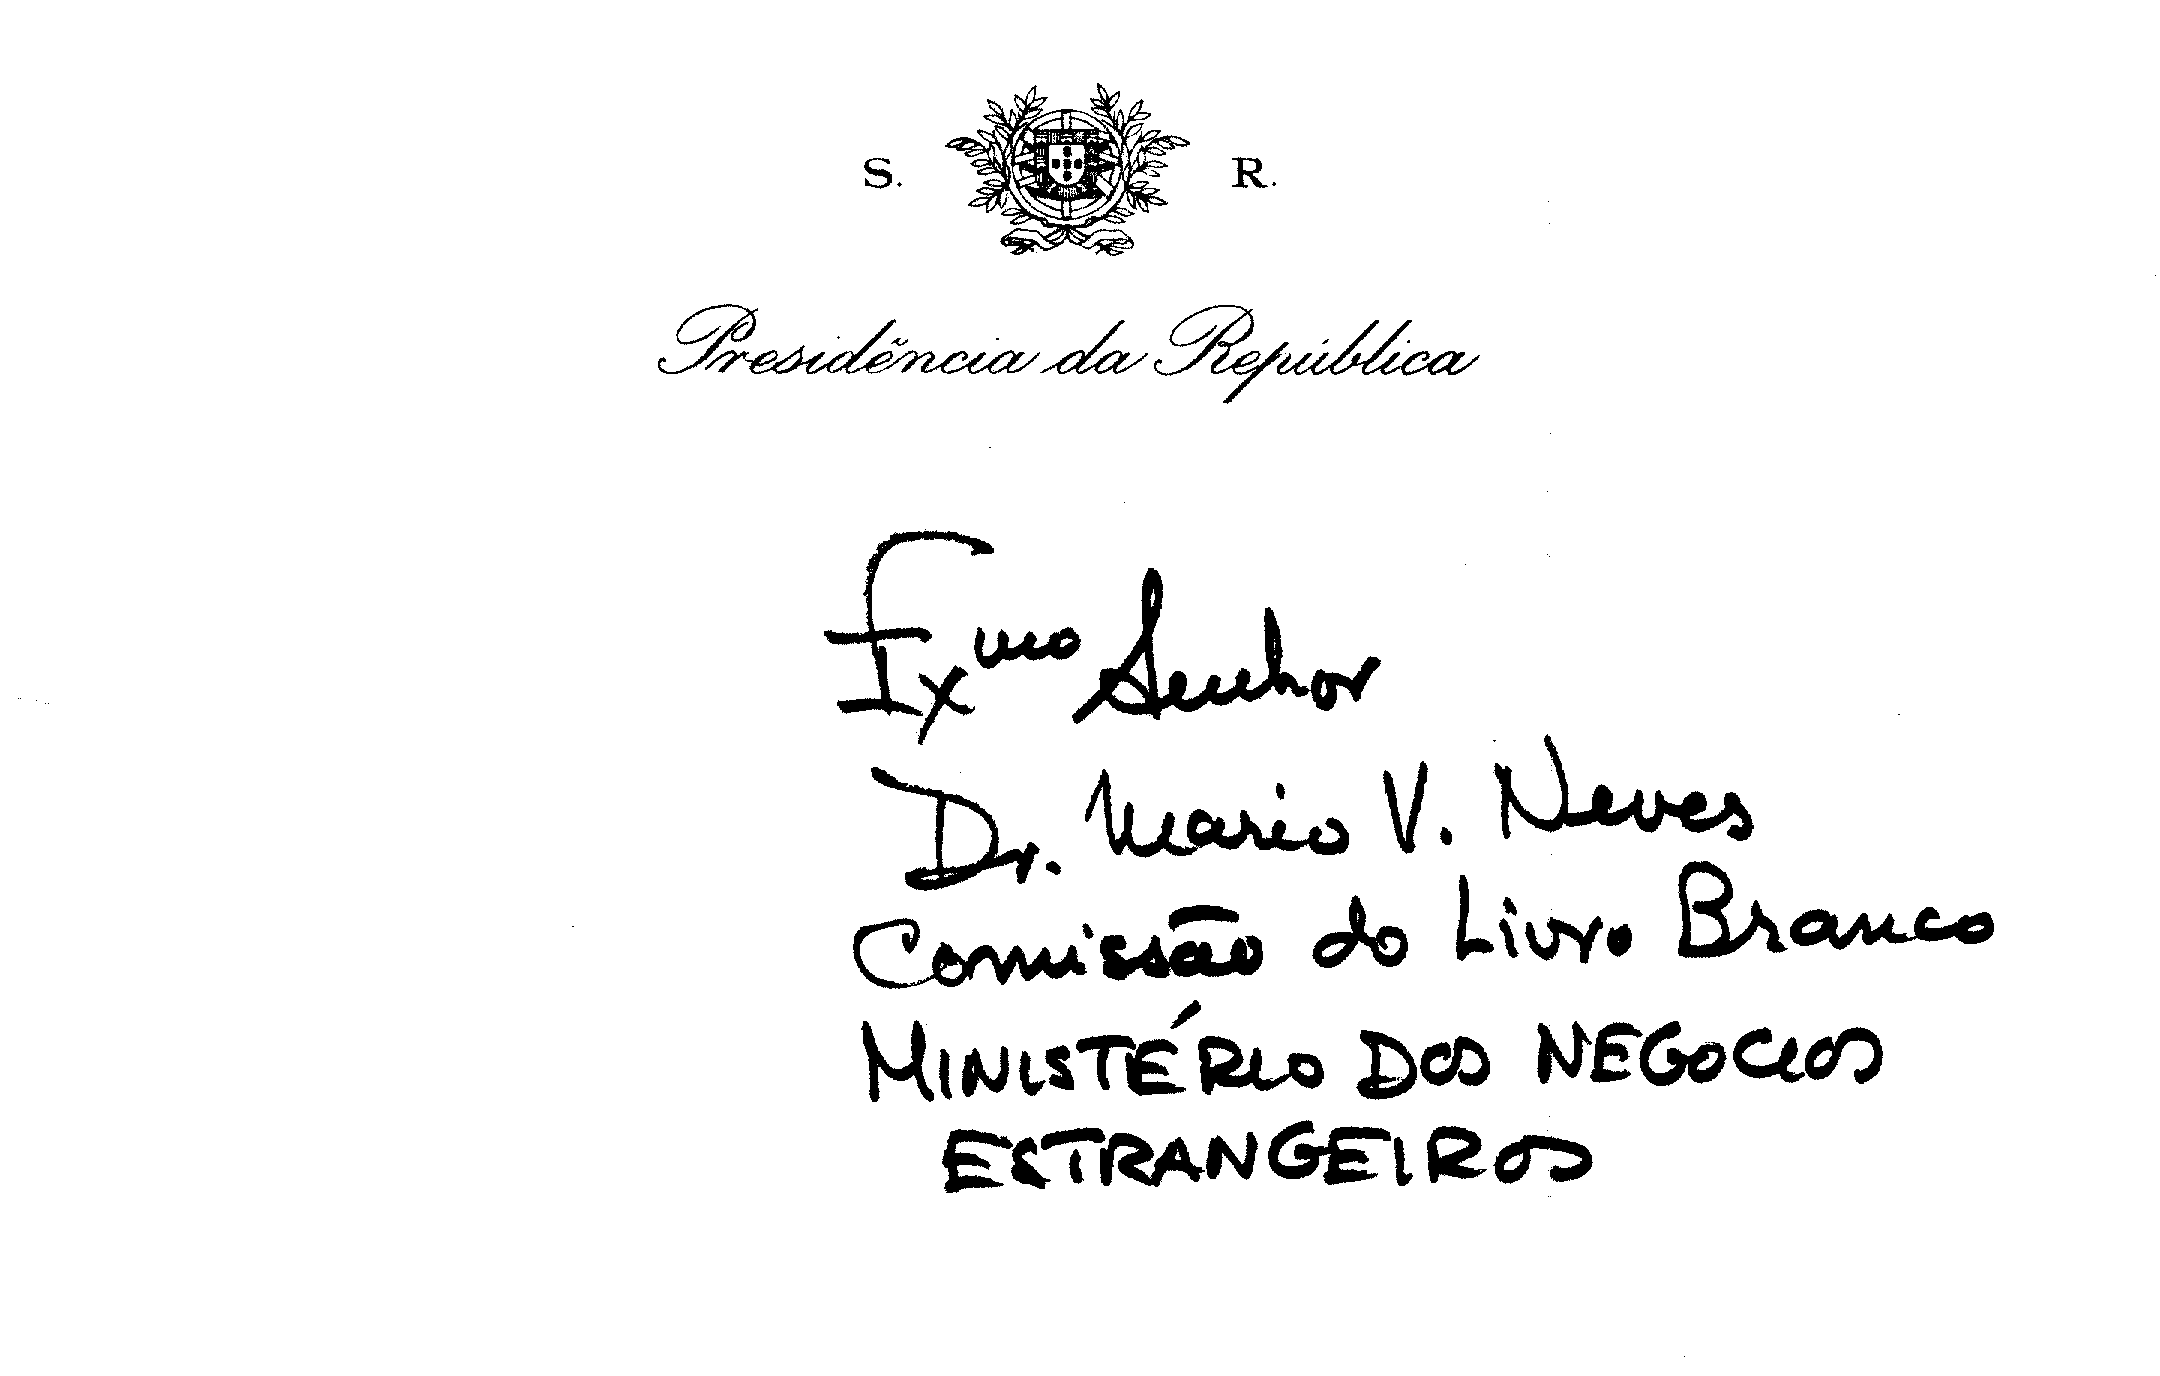 S. R.
Presidência da República
Exmo Senhor
Dr. Mario V. Neves
Comissão do Livro Branco
MINISTÉRIO DOS NEGOCIOS
ESTRANGEIROS